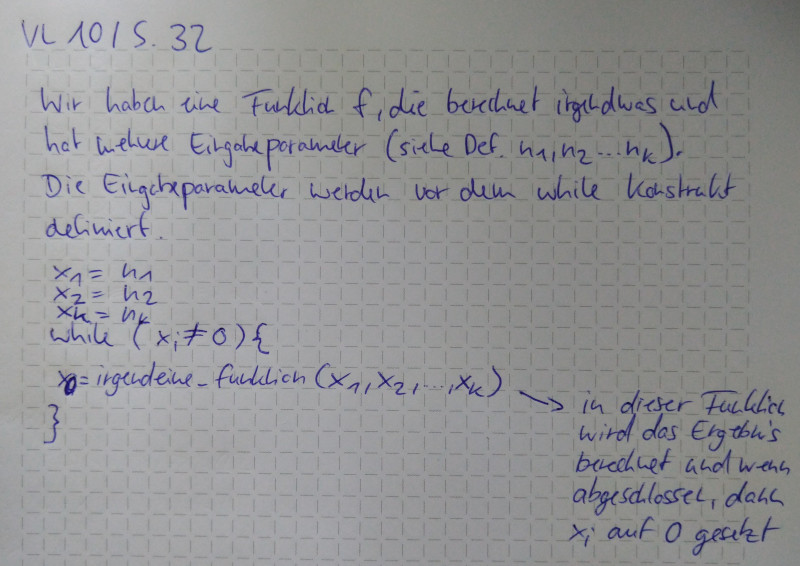 VL 10 / S. 32
Wir haben eine Funktion f, die berechnet irgendwas und
hat mehrere Eingabeparameter (siehe Def. n1, n2 ... nk).
Die Eingabeparameter werden vor dem while Konstrukt
definiert.
x1 = n1
x2 = n2
xk = nk
while (xi ≠ 0) {
x0 = irgendeine_funktion (x1, x2, ..., xk)
}
in dieser Funktion
wird das Ergebnis
berechnet und wenn
abgeschlossen, dann
xi auf 0 gesetzt